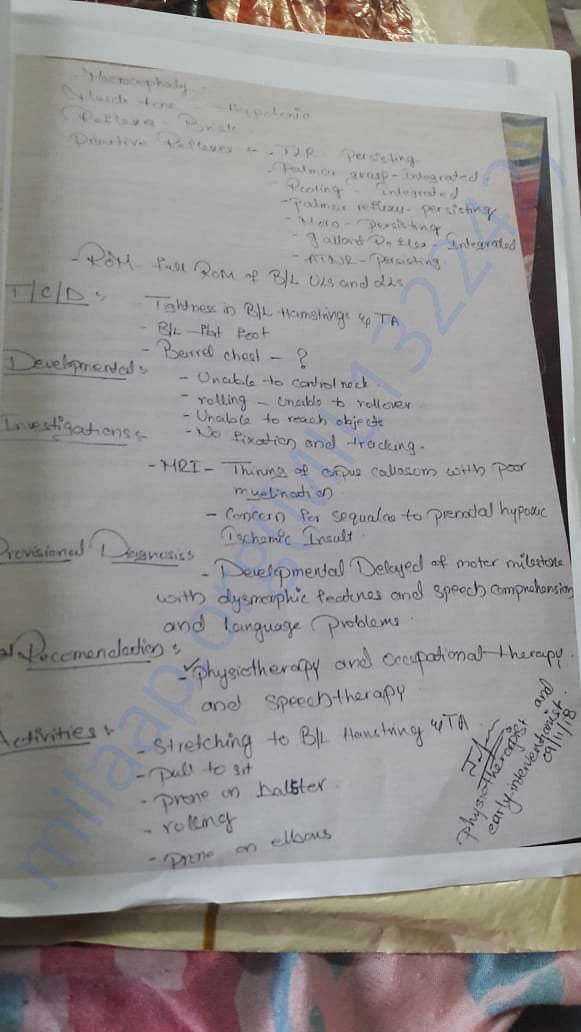 - Microcephaly
Muscle tone - Hypotonic
Reflexes - Brisk
Primitive Reflexes :- - TLR Persisting
- Palmar grasp - Integrated
- Rooting - integrated
- Palmar reflexes - persisting
- Moro - Persisting
- gallant Reflex - Integrated
- ATNR - Persisting
- ROM - full ROM of B/L ULs and LLs
T/C/D :
- Tightness in B/L Hamstrings & TA
- B/L Flat Foot
- Barrel chest - ?
Developmental :
- Unable to control neck
- rolling - Unable to rollover
- Unable to reach objects
- No fixation and tracking.
Investigations :-
- MRI - Thining of corpus callosum with poor
myelination
- Concern for sequalae to prenatal hypoxic
Ischemic Insult.
Provisional Diagnosis :
- Developmental Delayed of moter milestone
with dysmorphic features and speech comprehension
and language Problems.
Recomendation :
- Physiotherapy and occupational therapy
and speech therapy
Activities :
- Stretching to B/L Hamstring & TA
- pull to sit
- prone on bolster
- rolling
- prone on elbows
Physiotherapist and
early interventionist
09/11/18
milaap.org/MIL1322437